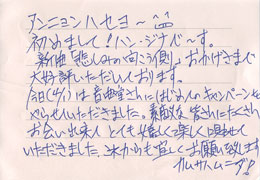 アンニョンハセヨ～^^
初めまして!ハン・ジナで～す。
新曲「悲しみの向こう側」おかげさまで
大好評いただいております。
今日(4/1)は音曲堂さんにはじめてのキャンペーンを
やらせていただきました。素敵な皆さんにたくさん
お会い出来ん とても嬉しく楽しく唄わせて
いただきました。これからも宜しくお願い致します
カムサハムニダ!